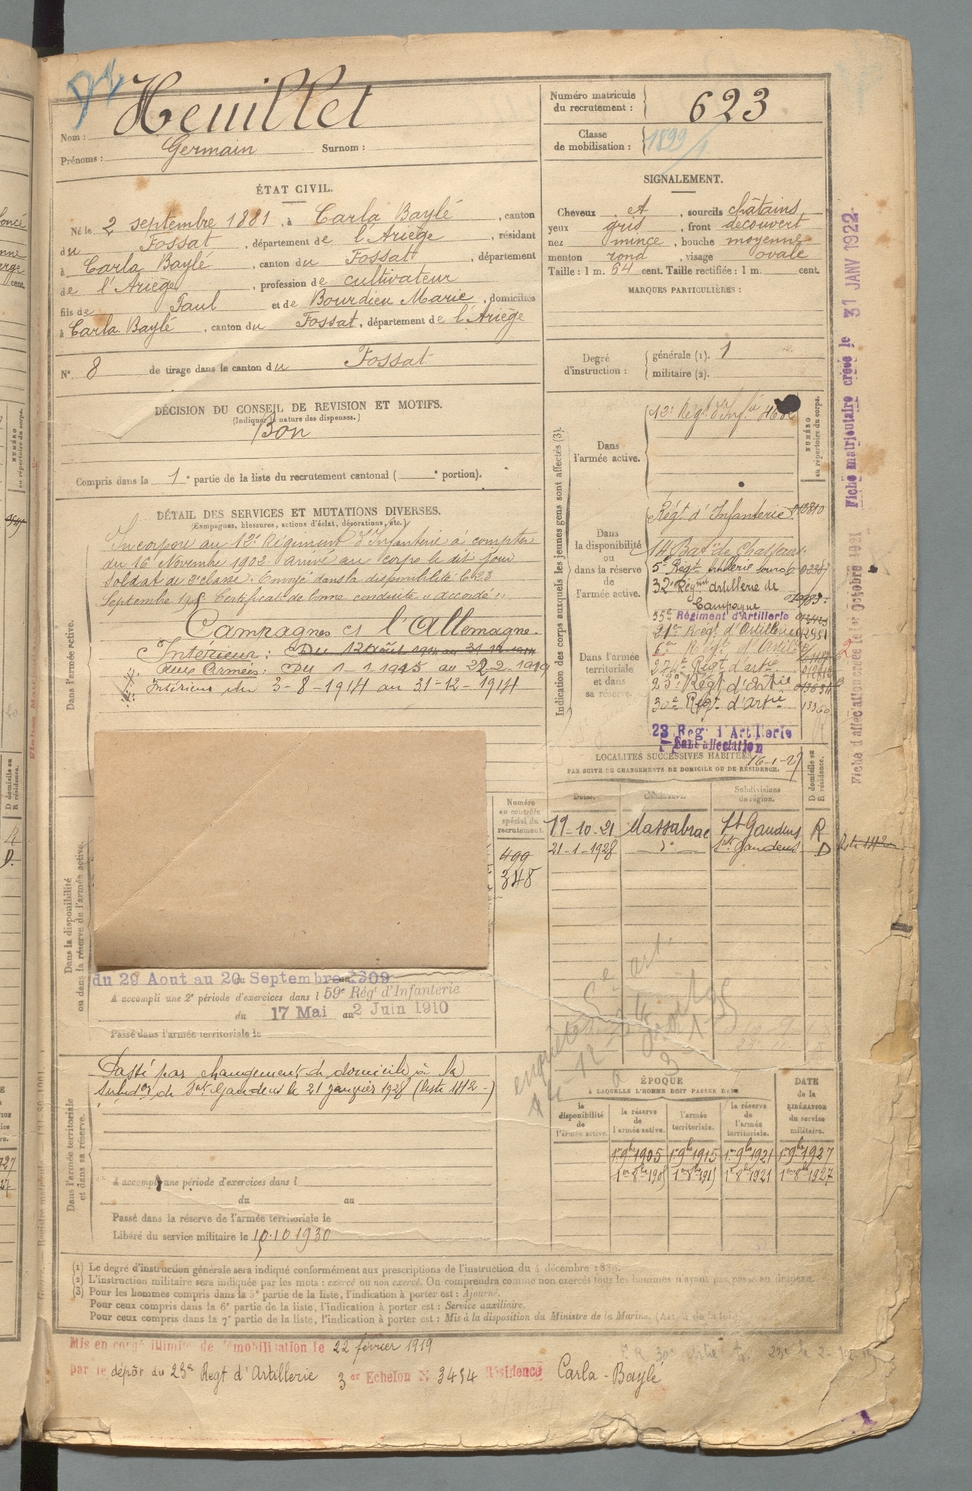 Heuillet
Nom :
Prénoms : Germain Surnom :
Numéro matricule du recrutement : 623
Classe de mobilisation : 1899
ÉTAT CIVIL.
Né le 2 septembre 1881, à Carla Baylé, canton
du Fossat, département de l'Ariège, résidant
à Carla Baylé, canton du Fossat, département
de l'Ariège, profession de cultivateur
fils de Paul et de Bourdieu Marie, domiciliés
à Carla Baylé, canton du Fossat, département de l'Ariège
N° 8 de tirage dans le canton du Fossat
SIGNALEMENT.
Cheveux et, sourcils châtains
yeux gris, front découvert
nez mince, bouche moyenne
menton rond, visage ovale
Taille : 1 m. 64 cent. Taille rectifiée : 1 m. cent.
MARQUES PARTICULIÈRES :
Degré d'instruction : générale (1). 1
militaire (2).
DÉCISION DU CONSEIL DE REVISION ET MOTIFS.
(Indiquer la nature des dispenses.)
Bon
Compris dans la 1e partie de la liste du recrutement cantonal ( e portion).
DÉTAIL DES SERVICES ET MUTATIONS DIVERSES.
(Campagnes, blessures, actions d'éclat, décorations, etc.)
Incorporé au 12e Régiment d'Infanterie à compter
du 16 Novembre 1902 arrivé au corps le dit jour
soldat de 2e classe. Envoyé dans la disponibilité le 23
Septembre Certificat de bonne conduite "accordé".
Campagnes ct l'Allemagne.
Intérieur : Du 12 août 1914 au 31-12-1914
aux Armées : du 1-1-1915 au 22-2-1919
Intérieur du 3-8-1914 au 31-12-1914
Dans l'armée active.
Indication des corps auxquels les jeunes gens sont affectés (3).
Dans l'armée active.
12e Régt d'Infie
NUMÉRO au répertoire du corps.
Dans la disponibilité ou dans la réserve de l'armée active.
Régt d'Infanterie
14 Bat. de Chasseurs
5e Régt
32e Régt artillerie de
Campagne
Dans l'armée territoriale et dans sa réserve.
35e Régiment d'Artillerie
21e Régt d'Artillerie
Régt d'Artie
23e Régt d'Artie
30e Régt d'Artie 13360
23 Reg' d'Artillerie
Sans affectation
16-1-27
LOCALITÉS SUCCESSIVES HABITÉES
PAR SUITE DE CHANGEMENTS DE DOMICILE OU DE RÉSIDENCE.
Dates. Communes. Subdivisions de région. D domicile ou R résidence.
19-10-21 Massabrac St Gaudens R
21-1-1928 do St Gaudens D
Numéro au contrôle spécial du recrutement.
499
348
Dans la disponibilité ou dans la réserve de l'armée active.
du 29 Aout au 20 Septembre 1909
A accompli une 2e période d'exercices dans l 59e Régt d'Infanterie
du 17 Mai au 2 Juin 1910
Passé dans l'armée territoriale le
Passé par changement de domicile à la
subdon de St Gaudens le 21 janvier 1928 (liste 1112-)
Dans l'armée territoriale et dans sa réserve.
A accompli une période d'exercices dans l
du au
Passé dans la réserve de l'armée territoriale le
Libéré du service militaire le 10.10.1930
ÉPOQUE
À LAQUELLE L'HOMME DOIT PASSER DANS
DATE de la LIBÉRATION du service militaire.
la disponibilité de l'armée active. la réserve de l'armée active. l'armée territoriale. la réserve de l'armée territoriale.
1er 9bre 1905 1er 9bre 1915 1er 9bre 1921 1er 9bre 1927
1er 8bre 1905 1er 8bre 1915 1er 8bre 1921 1er 8bre 1927
(1) Le degré d'instruction générale sera indiqué conformément aux prescriptions de l'instruction du 4 décembre
(2) L'instruction militaire sera indiquée par les mots : exercé ou non exercé. On comprendra comme non exercés tous les hommes n'ayant pas passé au drapeau.
(3) Pour les hommes compris dans la 5e partie de la liste, l'indication à porter est : Ajourné.
Pour ceux compris dans la 6e partie de la liste, l'indication à porter est : Service auxiliaire.
Pour ceux compris dans la 7e partie de la liste, l'indication à porter est : Mis à la disposition du Ministre de la Marine.
Mis en congé illimité de démobilisation le 22 février 1919
par le dépôt du 23e Régt d'Artillerie 3e Echelon N° 3454 Résidence Carla-Bayle
Fiche matriculaire créée le 31 JANV 1922
Fiche d'affectation créée le 1er Octobre 1921